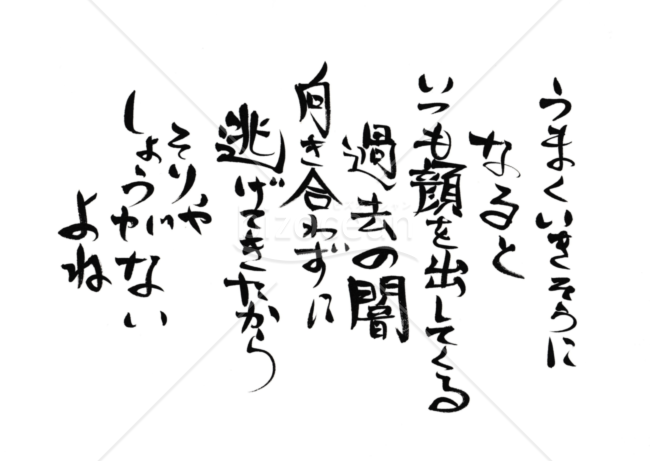 うまくいきそうに
なると
いつも顔を出してくる
過去の闇
向き合わずに
逃げてきたから
そりゃ
しょうがない
よね